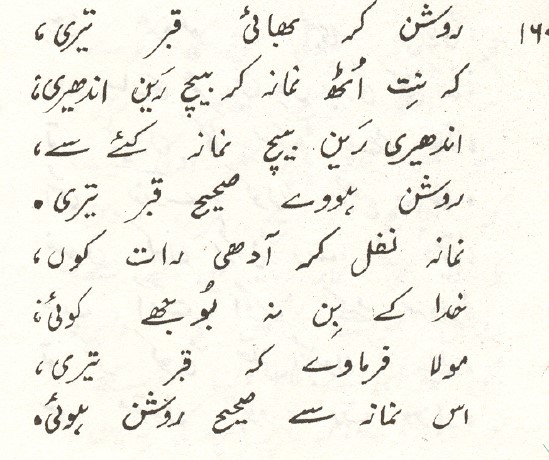 ۱۶۰ روشن کر بھائی قبر تیری،
کہ نِت اُٹھ نماز کر بیچ رَین اندھیری؛
اندھیری رَین بیچ نماز کئے سے،
روشن ہووے صحیح قبر تیری۔
نماز نفل کر آدھی رات کوں،
خدا کے بِن نہ بُوجھے کوئی؛
مولا فرماوے کہ قبر تیری،
اس نماز سے صحیح روشن ہوئی۔